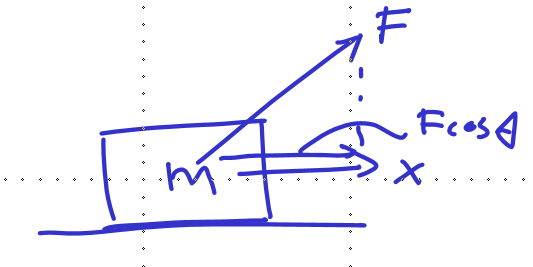 F
Fcosθ
m
x